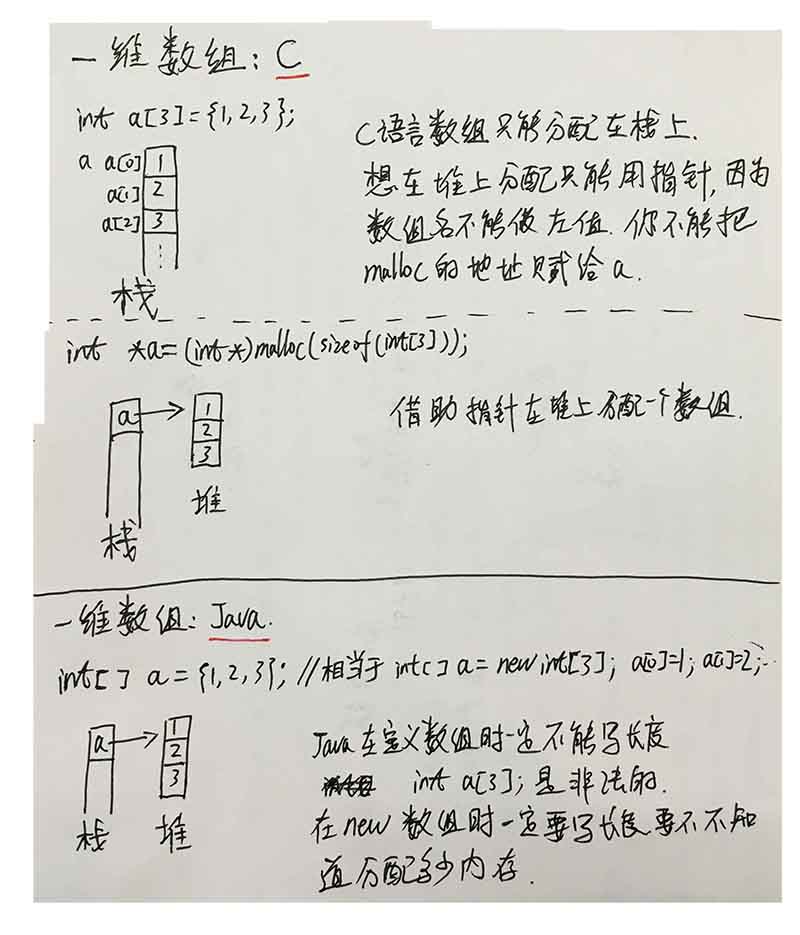 一维数组：C
int a[3]={1,2,3};
a a[0] 1
a[1] 2
a[2] 3
⋮
栈
C语言数组只能分配在栈上.
想在堆上分配只能用指针,因为
数组名不能做左值.你不能把
malloc的地址赋给a.
int *a=(int*)malloc(sizeof(int[3]));
a
1
2
3
堆
栈
借助指针在堆上分配一个数组.
一维数组：Java.
int[] a={1,2,3}; //相当于int[] a=new int[3]; a[0]=1; a[1]=2;...
a
1
2
3
栈
堆
Java在定义数组时一定不能写长度
int a[3];是非法的.
在new数组时一定要写长度要不不知
道分配多少内存.